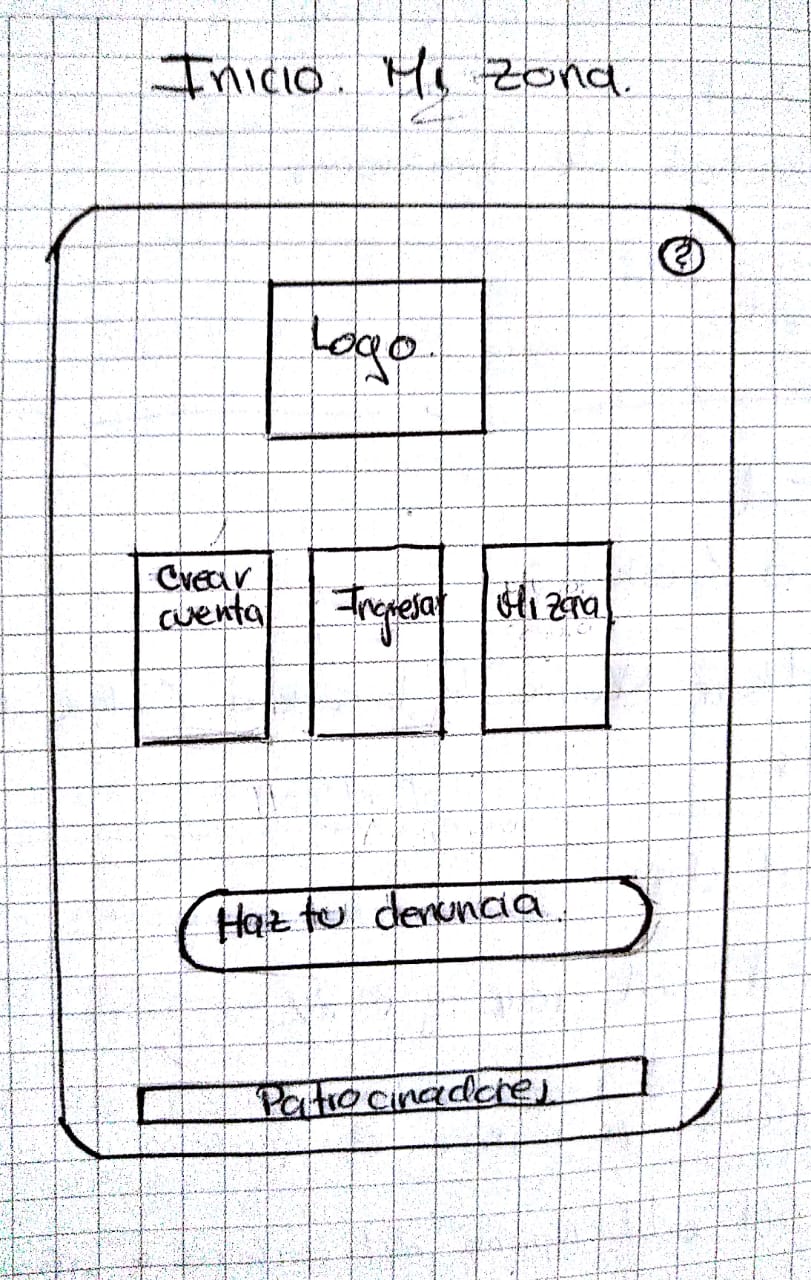 Inicio. Mi zona.
?
Logo.
Crear
cuenta
Ingresar
Mi zona
Haz tu denuncia.
Patrocinadores